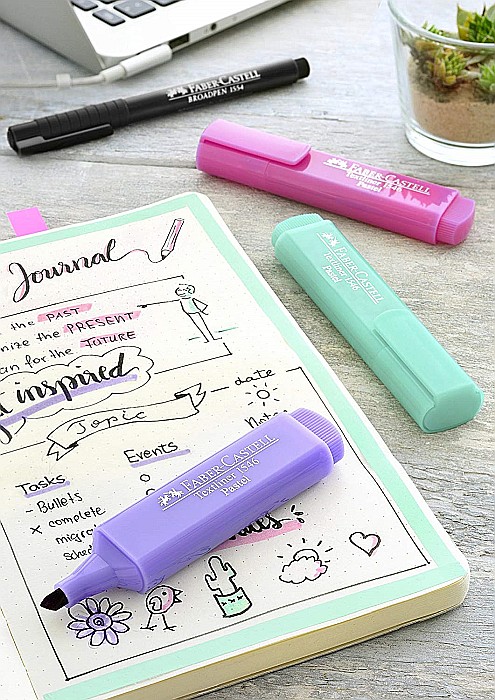 FABER-CASTELL
BROADPEN 1554
FABER-CASTELL
Textliner 1546
Pastel
FABER-CASTELL
Textliner 1546
Pastel
Journal
the PAST
nize the PRESENT
an for the FUTURE
inspired
Topic
date
Notes
Tasks
Events
- Bullets
x complete
migra
sched
FABER-CASTELL
Textliner 1546
Pastel